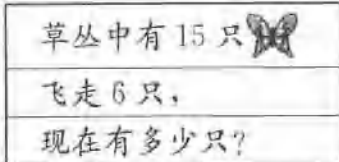 草丛中有15只
飞走6只，
现在有多少只？